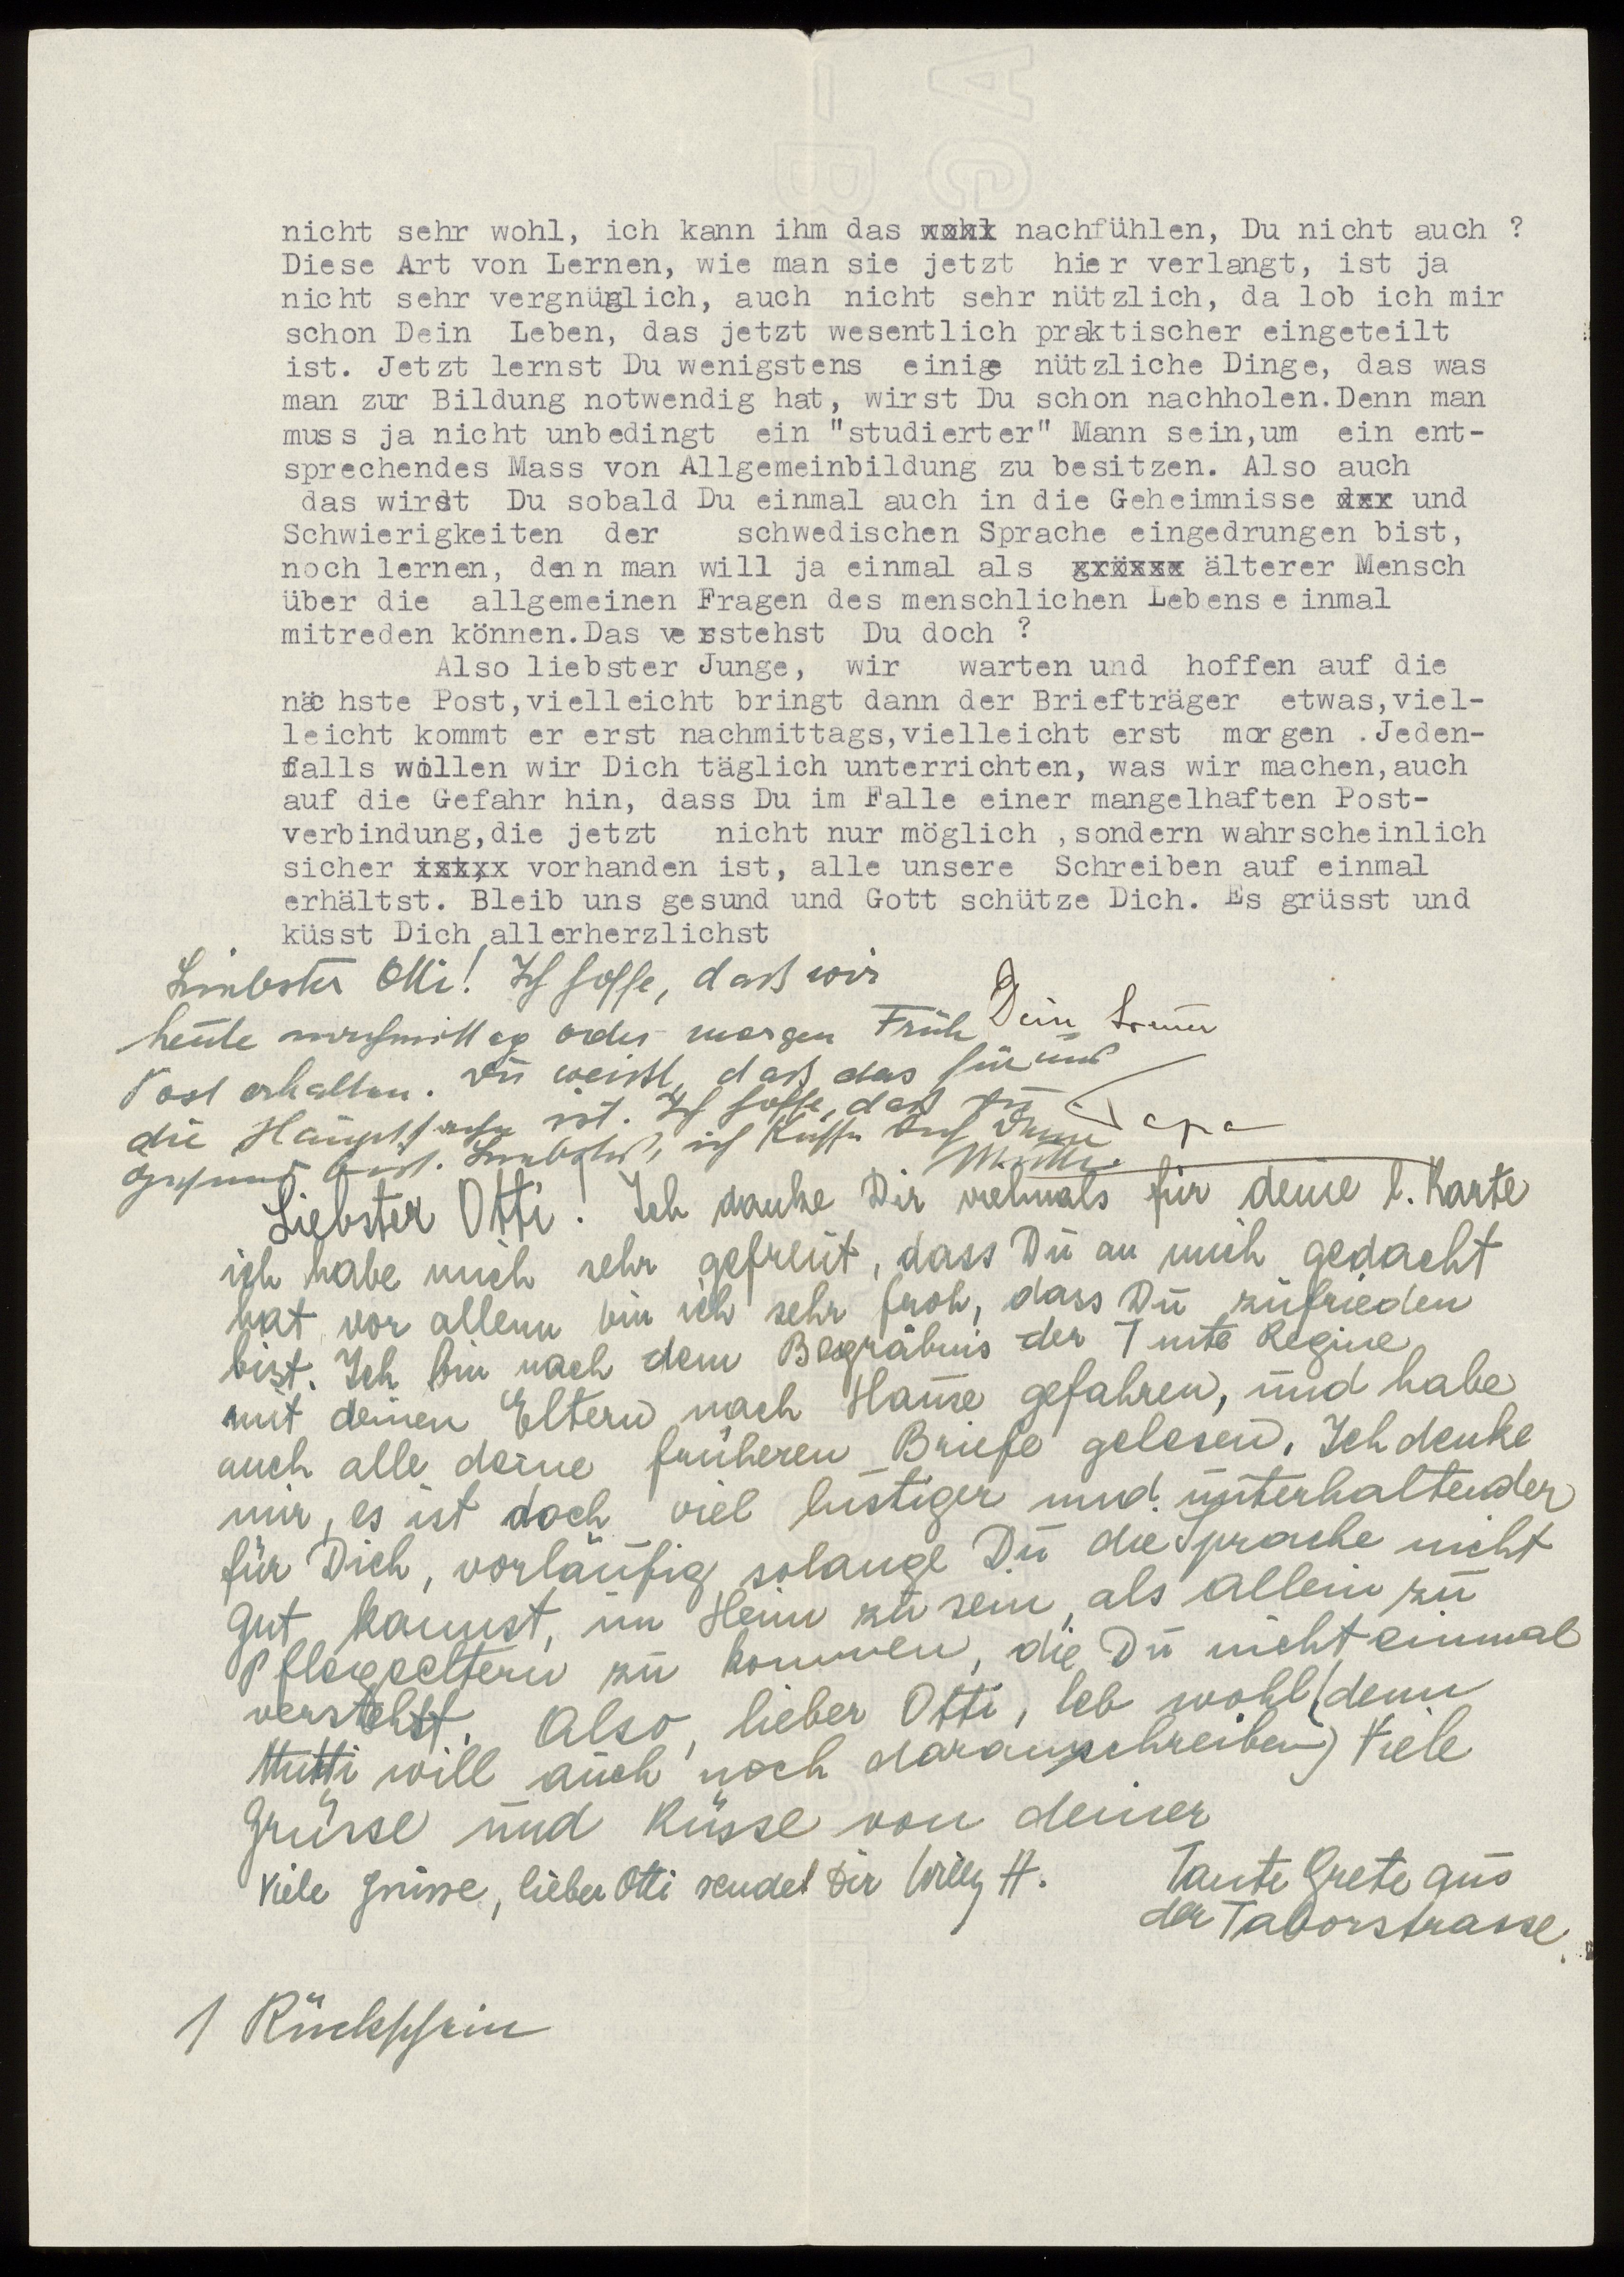 nicht sehr wohl, ich kann ihm das xxxx nachfühlen, Du nicht auch ?
Diese Art von Lernen, wie man sie jetzt hier verlangt, ist ja
nicht sehr vergnüglich, auch nicht sehr nützlich, da lob ich mir
schon Dein Leben, das jetzt wesentlich praktischer eingeteilt
ist. Jetzt lernst Du wenigstens einige nützliche Dinge, das was
man zur Bildung notwendig hat, wirst Du schon nachholen.Denn man
muss ja nicht unbedingt ein "studierter" Mann sein,um ein ent-
sprechendes Mass von Allgemeinbildung zu besitzen. Also auch
das wirst Du sobald Du einmal auch in die Geheimnisse xxx und
Schwierigkeiten der schwedischen Sprache eingedrungen bist,
noch lernen, denn man will ja einmal als xxxxxx älterer Mensch
über die allgemeinen Fragen des menschlichen Lebens einmal
mitreden können.Das verstehst Du doch ?
Also liebster Junge, wir warten und hoffen auf die
nächste Post,vielleicht bringt dann der Briefträger etwas,viel-
leicht kommt er erst nachmittags,vielleicht erst morgen .Jeden-
falls wollen wir Dich täglich unterrichten, was wir machen,auch
auf die Gefahr hin, dass Du im Falle einer mangelhaften Post-
verbindung,die jetzt nicht nur möglich ,sondern wahrscheinlich
sicher xxxxx vorhanden ist, alle unsere Schreiben auf einmal
erhältst. Bleib uns gesund und Gott schütze Dich. Es grüsst und
küsst Dich allerherzlichst
Dein treuer
Papa
Liebster Otti! Ich hoffe, daß wir
heute nachmittag oder morgen Früh
Post erhalten. Du weißt, daß das für uns
die Hauptsache ist. Ich hoffe, daß Du
gesund bist. Liebster, ich küsse Dich Deine
Mutti.
Liebster Otti! Ich danke Dir vielmals für deine l. Karte
ich habe mich sehr gefreut, dass Du an mich gedacht
hat vor allem bin ich sehr froh, dass Du zufrieden
bist. Ich bin nach dem Begräbnis der Tante Regine
mit deinen Eltern nach Hause gefahren, und habe
auch alle deine früheren Briefe gelesen. Ich denke
mir, es ist doch viel lustiger und unterhaltender
für Dich, vorläufig solange Du die Sprache nicht
gut kannst, im Heim zu sein, als allein zu
Pflegeeltern zu kommen, die Du nicht einmal
verstehst. Also, lieber Otti, leb wohl (denn
Mutti will auch noch daranschreiben) Viele
Grüsse und Küsse von deiner
Tante Grete aus
der Taborstrasse.
Viele Grüsse, lieber Otti sendet Dir Willy H.
1 Rückschein